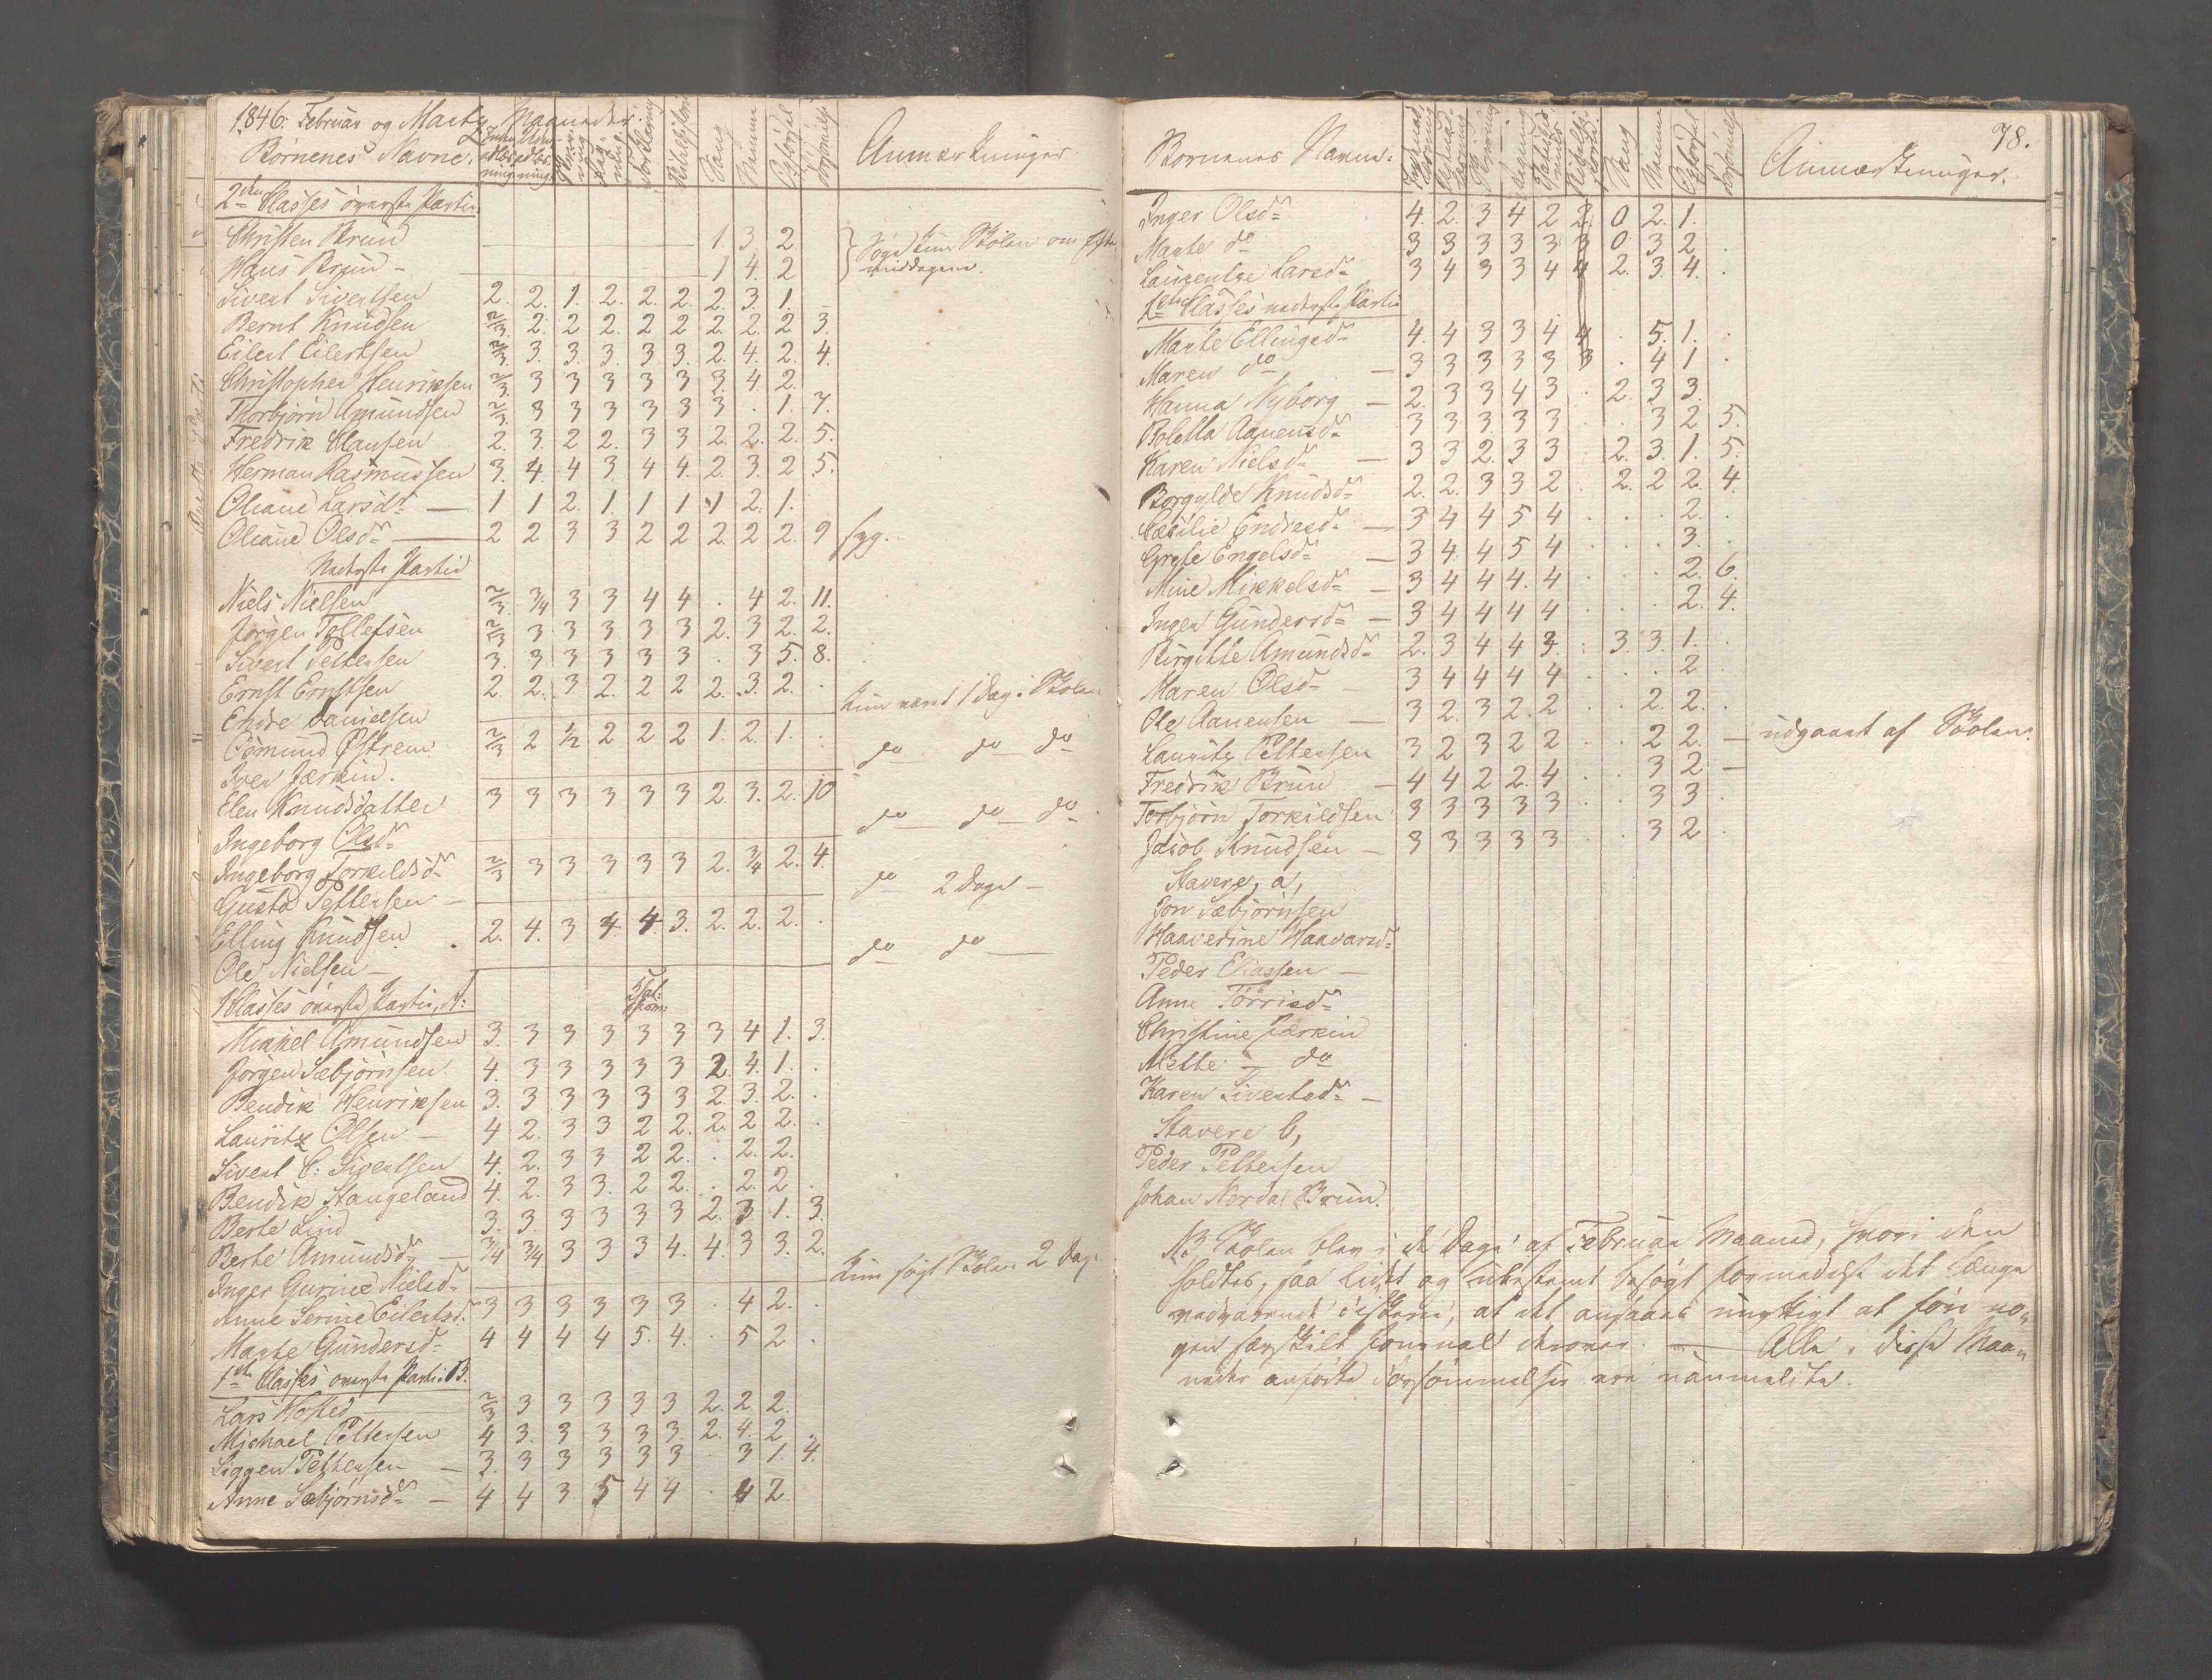 1846. Februar og Marts Maaneder.
Børnenes Navne. Anmærkninger.
2den Classes øverste Partie.
Christen Brun 1 3. 2. Søge kun Skolen om Efter
Hans Brun - 1 4. 2 middagene.
Sivert Sivertsen 2. 2. 1. 2. 2. 2. 2. 3. 1.
Bernt Knudsen 2/3. 2. 2 2. 2 2 2. 2. 2 3.
Eilert Eilertsen 2/3. 3. 3. 3. 3. 3. 2. 4. 2. 4.
Christopher Henriksen 2/3. 3 3 3 3 3 3. 4. 2.
Thorbjørn Amundsen 2/3. 3 3 3 3 3 3 . 1. 7.
Fredrik Clausen 2. 3. 2 2. 3 3 2. 2. 2. 5.
Herman Rasmussen 3. 4. 4 3 4 4. 2 3. 2 5.
Oliane Larsdr — 1 1 2. 1. 1 1 1 2. 1.
Oliane Olsdr — 2 2 3 3 2 2 2. 2. 2. 9 syg.
Nederste Partie
Niels Nielsen 2/3. 3/4 3 3 4 4 . 4 2. 11.
Jørgen Tollefsen 2/3 3 3 3 3 3 2. 3 2. 2.
Sivert Pettersen 3. 3 3 3 3 3 . 3 5. 8.
Ernst Ernstsen 2. 2. 3 2. 2 2 2. 3. 2. .
Endre Danielsen kun været 1 Dag i Skolen
Osmund Østrem 2/3 2 1/2 2 2 2 1. 2. 1. .
Iver Jærkin. do do do
Elen Knudsdatter 3 3 3 3 3 3 2. 3. 2. 10
Ingeborg Olsdr do do do
Ingeborg Torkildsdr 2/3 3 3 3 3 3 2. 3/4 2. 4.
Gustav Pettersen — do 2 Dage —
Elling Knudsen 2. 4. 3 4. 4. 3. 2. 2. 2. .
Ole Nielsen — do do —
Classes øverste Partie, A:
Mikkel Amundsen 3. 3 3 3 3 3 3 4 1. 3.
Jørgen Sæbjørnsen 4. 3 3 3 3 3 2. 4. 1. .
Bendik Henriksen 3. 3 3 3 3 3 2. 3. 2. .
Lauritz Olsen — 4 2. 3 3 2 2. 2. 2 2. .
Sivert C. Sivertsen 4. 2. 3 3 2 2. . 2. 2.
Bendik Stangeland 4. 2. 3 3. 2 2. . 2. 2 .
Berte Lind 3. 3. 3 3 3 3 2. 3 1. 3.
Berte Amundsdr — 3/4 3/4 3 3 3 4. 4. 3 3. 2.
Inger Gurine Nielsdr kun søgt Skolen 2 Dage
Anne Serine Eilertsdr 3 3 3 3 3 3 . 4 2. .
Marte Gundersdr 4 4 4 4 5. 4. . 5 2 .
1ste Classes øverste Partie B.
Lars Wested 2/3 3 3 3 3 3 2. 2. 2.
Michael Pettersen 4 3. 3 3. 3 3. 2. 4. 2 .
Siggen Pettersen — 3. 3 3 3 3 3 . 3 1. 4.
Anne Sæbjørnsdr — 4 4 3 5 4 4 . 4 2.
78.
Børnenes Navne. Anmærkninger.
Inger Olsdr 4. 2. 3 4 2 2. 0 2. 1.
Marte do 3 3 3 3 3 3 0 3 2 .
Laurentze Larsdr 3 4 3 3 4 4 2. 3. 4. .
1ste Classes nederste Partie
Marte Ellingsdr 4. 4 3 3 4 4 . 5. 1. .
Maren do — 3 3 3 3 3 3 . 4 1 .
Hanna Nyborg — 2. 3 3 4 3 . 2. 3 3.
Boletta Aanensdr 3 3 3 3 3 . . 3 2 5.
Karen Nielsdr — 3 3 2. 3 3 . 2. 3. 1. 5.
Borgylde Knudsdr 2. 2. 3 3 2 . 2. 2 2. 4.
Cæcilie Endresdr — 3 4 4 5 4 . . . 2. .
Grete Engelsdr — 3 4. 4 5 4 . . . 3. .
Mine Mikkelsdr — 3 4 4 4. 4 . . . 2. 6.
Inger Gundersdr — 3 4 4 4 4 . . . 2. 4.
Birgitte Amundsdr 2. 3 4 4 3. . 3. 3. 1. .
Maren Olsdr — 3 4 4 4 4 . . . 2 .
Ole Aanensen — 3 2. 3 2. 2 . . 2. 2. .
Lauritz Pettersen 3 2 3 2 2 . . 2 2. — udgaaet af Skolen.
Fredrik Brun — 4 4 2 2. 4 . . 3 2 —
Torbjørn Torkildsen 3 3 3 3 3 . . 3 3 .
Jacob Knudsen — 3 3 3 3 3 . . 3 2 .
Stavere, a,
Jon Sæbjørnsen
Haaverine Haavarsdr
Peder Eliassen —
Anne Tørrisdr
Christine Jærkin
Mette — do
Karen Sivertsdr —
Stavere b,
Peder Pettersen
Johan Nordal Brun.
NB. Skolen blev i de Dage af Februar Maaned, hvori den
holdtes, saa lidet og ubestemt besøgt formedelst det længe
vedvarende Fiskerie, at det ansaaes unyttigt at føre no-
gen særskilt Journal derover. — Alle i disse Maa-
neder anførte Forsømmelser ere uanmeldte.